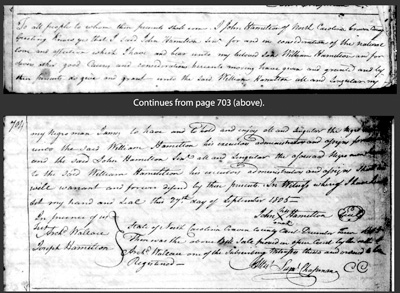 To all people to whom these presents shall come. I John Hamilton of North Carolina Craven County
Greeting Know ye that I said John Hamilton for and in consideration of the natural
love and affection which I have and bear unto my beloved Son William Hamilton as for
divers other good Causes and considerations hereunto moving have given and granted and by
these presents do give and grant unto the said William Hamilton all and singular my
Continues from page 703 (above).
704
my Negro man James to have and to hold and enjoy all and singular the Negro
unto the said William Hamilton his executors administrators and assigns forever
and the said John Hamilton all and singular the aforesaid Negro man
to the said William Hamilton his executors administrators and assigns shall
well warrant and forever defend by these presents In Witness whereof I have
set my hand and Seal the 27th day of September 1805
John Hamilton
mark
In presence of us
Archd. Wallace
Joseph Hamilton
State of North Carolina Craven County Court December Term
Then was the above Bill Sale proved in open Court by the oath of
Archd. Wallace one of the Subscribing Witnesses thereto and ordered to be
Registered
Saml. Chapman CC